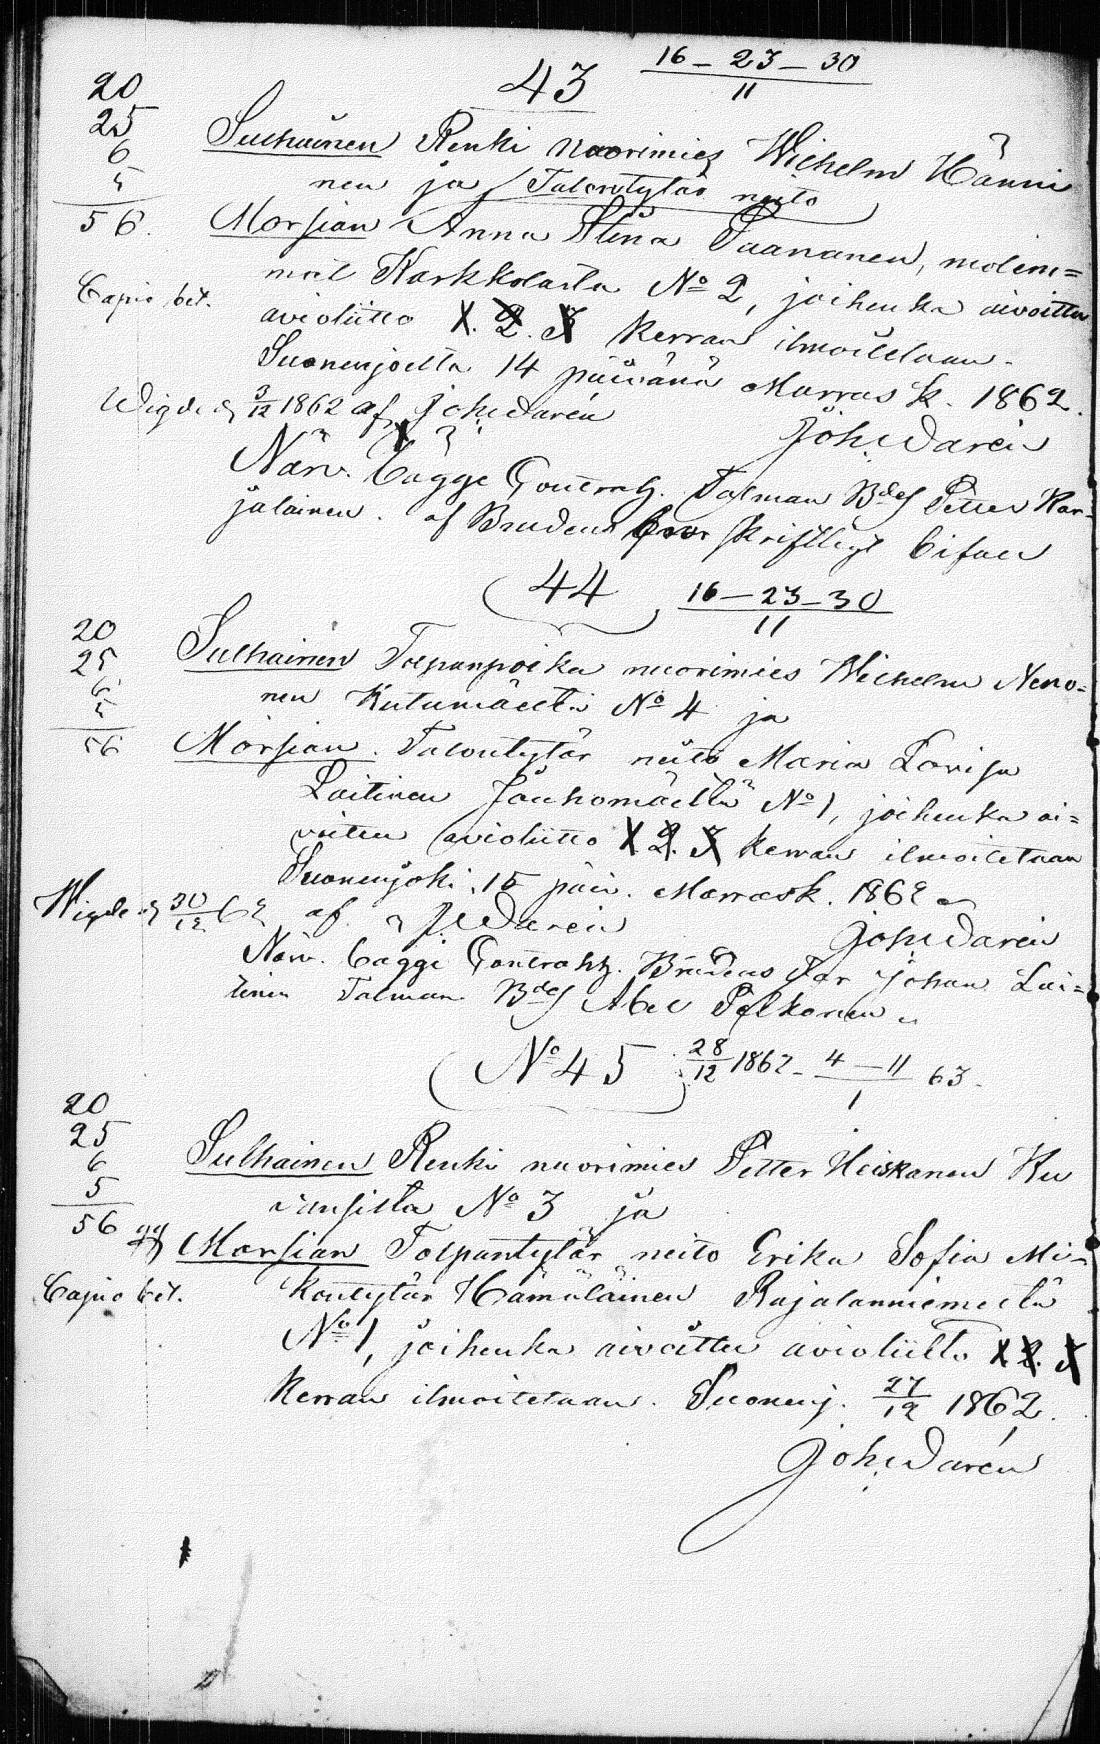 43 16 – 23 – 30 / 11
20
25
6
5
56.
Sulhainen Renki nuorimies Wilhelm Hänni
nen ja Talontytär neito
Morsian Anna Stina Taananen, molem=
mat Karkkolasta No 2, joihenka aivoittu
Capio bet.
avioliitto 1. 2. 3 kerran ilmoitetaan.
Suonenjoella 14 päivänä Marrask. 1862.
Wigde d 3/12 1862 af Joh. Darén
Joh. Darén
Närv. Cagge Contrah. Talman Bdes Petter Kar-
jalainen. af Brudens skriftligt bifall
44 16 – 23 – 30 / 11
20
25
6
5
56
Sulhainen Torpanpoika nuorimies Wilhelm Neno=
nen Kutumäeltä No 4 ja
Morsian. Talontytär neito Maria Lovisa
Laitinen Jauhomäeltä No 1, joihenka ai=
voittu avioliitto 1 2. 3 kerran ilmoitetaan
Suonenjoki, 15 päiv. Marrask. 1862
Wigde d 30/12 62 af J. Darén
Joh. Darén
Närv. Cagge Contrah. Brudens Far Johan Lai=
tinen Talman Bdes Abel Pelkonen
No 45 28/12 1862 – 4 – 11 / 1 63.
20
25
6
5
56
Sulhainen Renki nuorimies Petter Heiskanen Ku
vansilta No 3 ja
Morsian Torpantytär neito Erika Sofia Mi=
kontytär Hämäläinen Rajalanniemeltä
Capio bet.
No 1, joihenka aivoittu avioliitto 1 2. 3
kerran ilmoitetaan. Suonenj. 27/12 1862.
Joh. Darén